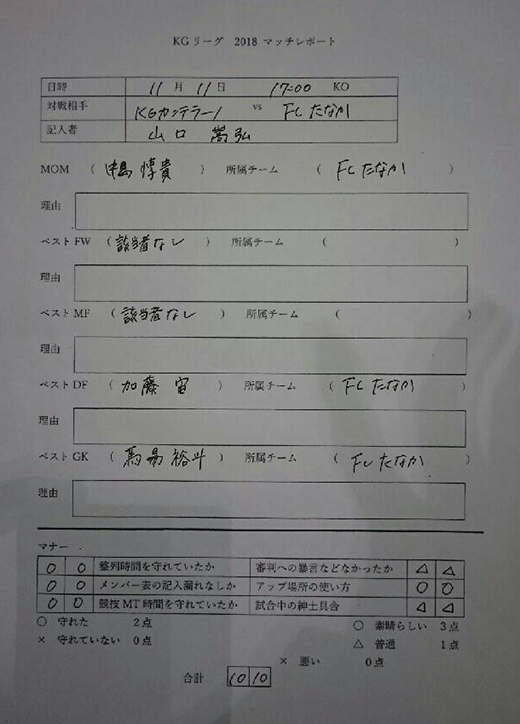 KGリーグ 2018 マッチレポート
日時 11月11日 17:00 KO
対戦相手 KGカンテラーノ vs FCたなか
記入者 山口 嵩弘
MOM ( 中島 惇貴 ) 所属チーム ( FCたなか )
理由
ベストFW ( 該当者なし ) 所属チーム ( )
理由
ベストMF ( 該当者なし ) 所属チーム ( )
理由
ベストDF ( 加藤 宙 ) 所属チーム ( FCたなか )
理由
ベストGK ( 馬場 裕斗 ) 所属チーム ( FCたなか )
理由
マナー
○ ○ 整列時間を守れていたか 審判への暴言などなかったか △ △
○ ○ メンバー表の記入漏れなしか アップ場所の使い方 ○ ○
○ ○ 競技MT時間を守れていたか 試合中の紳士具合 △ △
○ 守れた 2点 ○ 素晴らしい 3点
× 守れていない 0点 △ 普通 1点
× 悪い 0点
合計 10 10